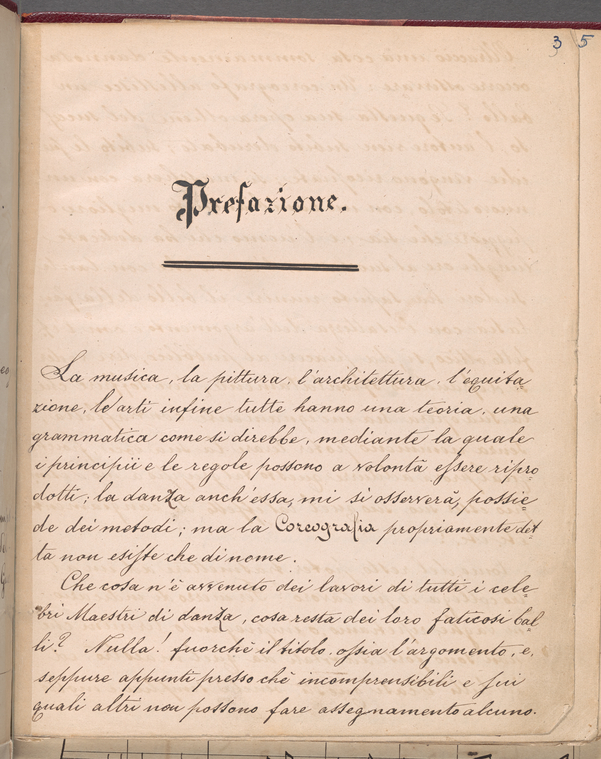 3 5
Prefazione.
La musica, la pittura, l'architettura, l'equita
zione, le arti infine tutte hanno una teoria, una
grammatica come si direbbe, mediante la quale
i principii e le regole possono a volontà essere ripro
dotti; la danza anch'essa, mi si osserverà, possie-
de dei metodi; ma la Coreografia propriamente det
ta non esiste che di nome.
Che cosa n'è avvenuto dei lavori di tutti i cele-
bri Maestri di danza, cosa resta dei loro faticosi bal-
li? Nulla! fuorchè il titolo, ossia l'argomento, e,
seppure appunti presso chè incomprensibili e sui
quali altri non possono fare assegnamento alcuno.